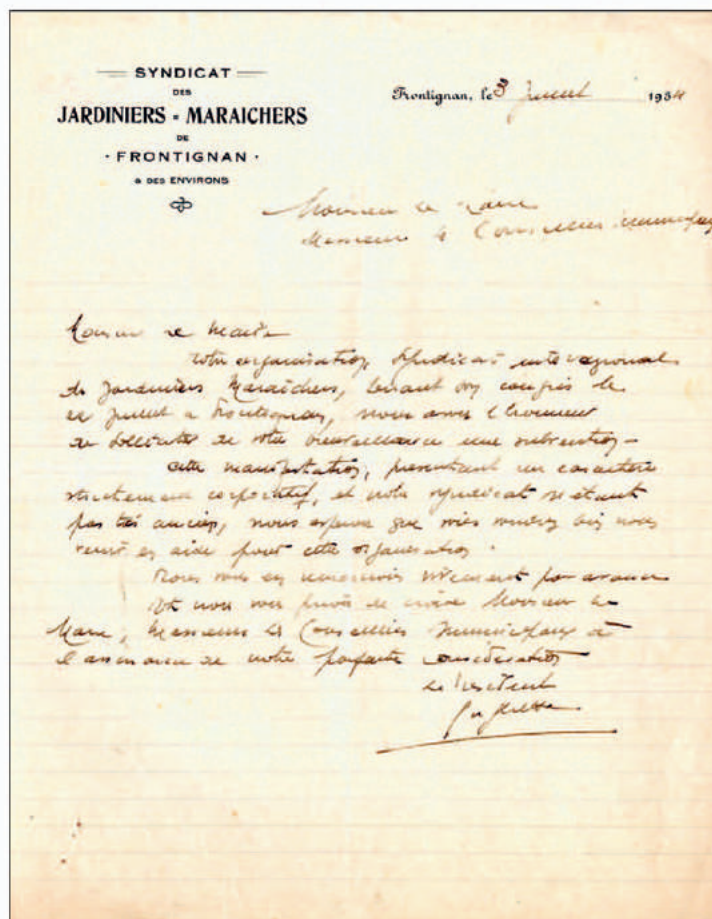 SYNDICAT
DES
JARDINIERS - MARAICHERS
DE
· FRONTIGNAN ·
& DES ENVIRONS
Frontignan, le 3 Juillet 1934
Monsieur le Maire
Messieurs les Conseillers municipaux
Monsieur le Maire
Notre organisation, Syndicat interregional
des Jardiniers Maraîchers, tenant son congrès le
Juillet a Frontignan, nous avons l'honneur
de solliciter de votre bienveillance une subvention -
Cette manifestation, présentant un caractère
strictement corporatif, et notre syndicat n'étant
pas très ancien, nous espérons que vous voudrez bien nous
venir en aide pour cette organisation.
Nous vous en remercions vivement par avance
et nous vous prions de croire Monsieur le
Maire, Messieurs les Conseillers Municipaux à
l'assurance de notre parfaite considération
Le Président